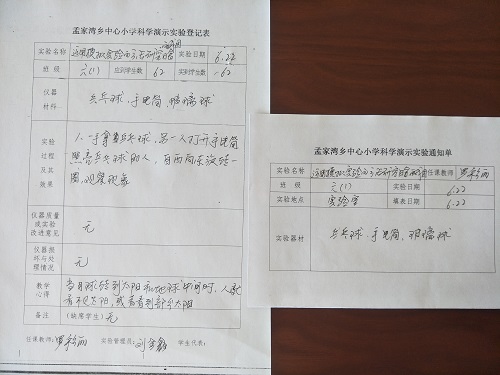 孟家湾乡中心小学科学演示实验登记表
实验名称 运用模拟实验的方法研究日食 实验日期 6.22
班级 六(1) 应到学生数 62 实到学生数 62
仪器
材料 乒乓球、手电筒、玻璃球
实验
过程
及其
效果
1、一手拿着乒乓球,另一人打开手电筒
照亮乒乓球的人,自西向东旋转一
圈,观察现象
仪器质量
或实验
改进意见 无
仪器损
坏与处
理情况 无
教学
心得
当月球转到太阳和地球中间时,人就
看不见太阳,或者看到部分太阳
备注 (缺席学生)无
任课教师: 罗 丽 实验管理员: 刘 学生代表:
孟家湾乡中心小学科学演示实验通知单
实验名称 运用模拟实验的方法研究 任课教师 罗 丽
班级 六(1) 实验日期 6.22
实验地点 实验室 填表日期 6.22
实验器材 乒乓球、手电筒、玻璃球